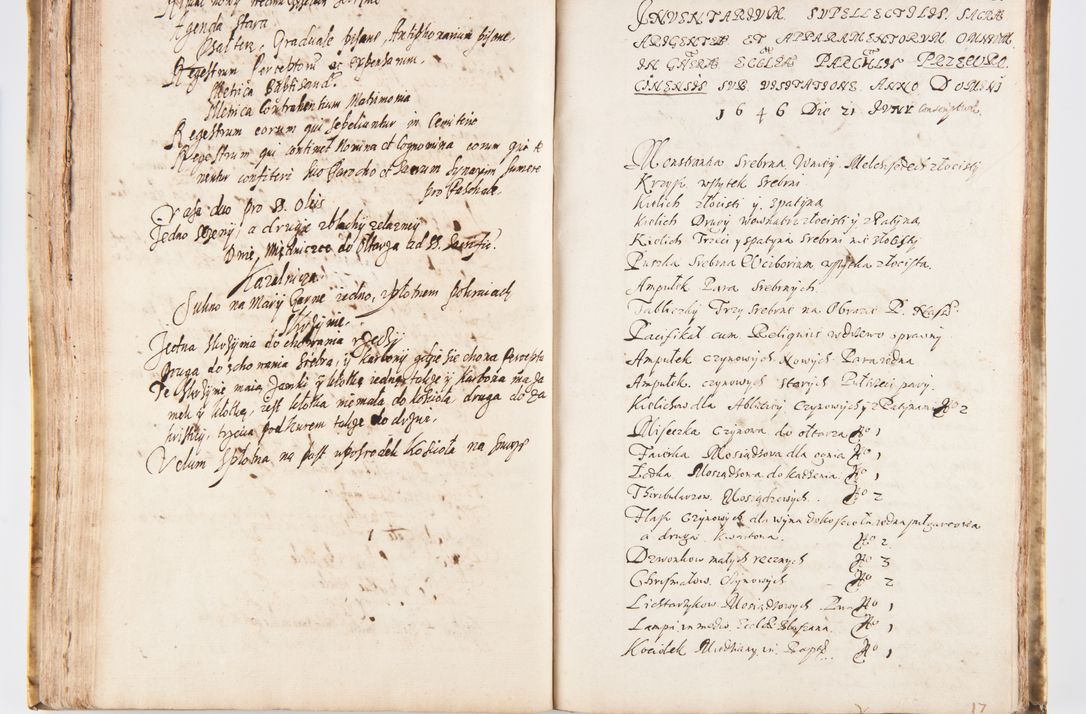 Agenda stara
Psalterz, Graduale pisane, Antiphonarium pisane,
Regestrum Perceptorum et Expensarum.
Metrica Baptisand.
Metrica Contrahentium Matrimonia
Regestrum eorum qui sebeliuntur in Cemiterio
Regestrum qui continet Nomina et Cognomina eorum qui te
nentur confiteri suo Parocho et Sacram Synaxim sumere
pro Paschate
Vasa duo pro S. Oleis
Jedno, a drugie zblachy zelazney
Dnie, Miednicze do Oltarza
Sukno na Mary Czarne iedno, zplotnem
Skrzynie.
Jedna Skrzynia do chowania
Druga do schowania Srebra, y Karbony gdzie sie chowa Percepta
Te Skrzynie maią Zamki y klotkę iednę, takze y Karbona ma za
mek y klotkę, iest klotka niemała do kosciola druga do za
kristiey, trzecia pod kurem takze do drzwi.
Velum zplotna na post wposrodek Kosciola na
INVENTARIVM SVPELLECTILIS SACRAE
ARGENTEAE ET APPARAMENTORVM OMNIVM
IN ECCLESIA PARCHLIS PRZECIN
CINENSIS SVB VISITATIONE ANNO DOMINI
1646 Die 21 IVNY conscriptum.
Monstrantia Srebrna Melchisedech złocisty
Krzyż wszytek Srebrni
Kielich złocisti y Spatyną
Kielich Drugy wewnatrz złocisty y zPatyną
Kielich Trzeci y spatyną Srebrni nie złocisty
Puszka Srebrna Wciborium wszytka złocista.
Ampułk Para Srebrnych
Tabliczky Trzy Srebrne na Obrazie P.
Pacifikał cum Reliquiis wdrzewo oprawny
Ampułek czynowych Nowych Para iedna
Ampułek. czynowych starych Pułtrzeci pary.
Kielichow dla Ablutiey Czynowych y zPatynami No 2
Miseczka Czynowa do ołtarza No 1
Faierka Mosiądzowa dla ognia No 1
Łodka Mosiądzowa do kadzenia No 1
Thuribularzow Mosiądzowych. No 2
Flasz Czynowych dla wyna do koscioła iedna pułgarcowa
a druga kwartowa. No 2
Dzwonkow małych recznych No 3
Chrismałow. Czynowych No 2
Lichtarzykow Mosiądzowych Para No 1
Lampa in medio Eccliae No 1
Kociołek Miedziany in Bapt. No 1
17